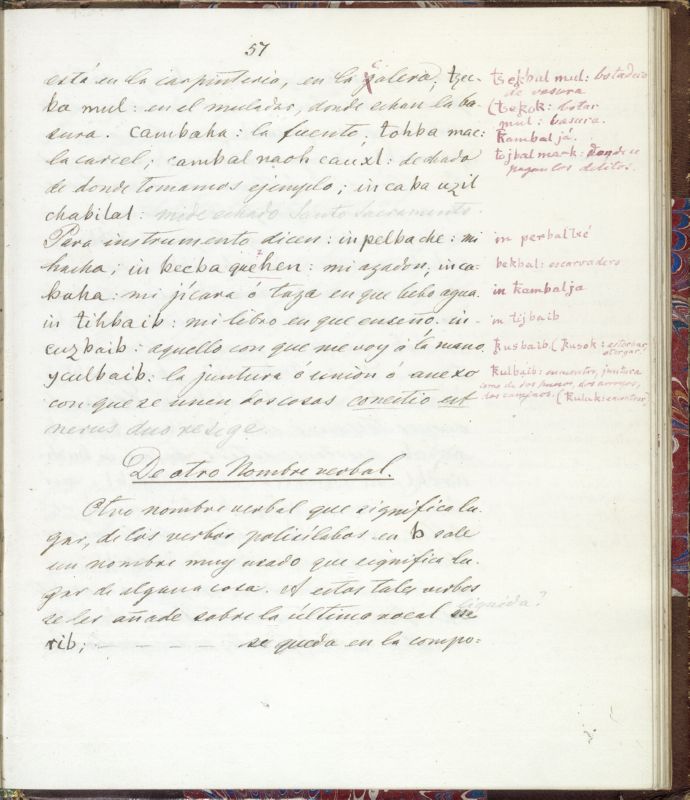 57
está en la carpinteria, en la galera; tzec-
ba mul: en el muladar, donde echan la ba-
sura. Cambaha: la fuente. tohba mac:
la carcel; cambal naoh cauxl: dechado
de donde tomamos ejemplo; in ca ba uzil
chabilal: Santo Sacramento.
Para instrumento dicen: in pelbache: mi
hacha; in kecba quehen: mi azadon; in ca-
baha: mi jícara ó taza en que bebo agua.
in tihbaib: mi libro en que enseño. in-
cuzbaib: aquello con que me voy á la mano.
yculbaib: la juntura ó union ó anexo
con que se unen dos cosas
De otro Nombre verbal.
Otro nombre verbal que significa lu-
gar, de los verbos policilabos en b sale
un nombre muy usado que significa lu-
gar de alguna cosa. A estos tales verbos
se les añade sobre la última vocal
rib; – – – – se queda en la compo:
tzekbal mul: botadero
de vasura.
(tzekok: botar
mul: basura.
kambal já.
tojbal mark: donde se
pagan los delitos.
in perbaltzé
bekbal: escarvadero
in kambalja
in tijbaib
kusbaib (kusok: estorbar
otorgar?
kulbaib: encuentro, juntura
como de dos huesos, dos arroyos,
dos caminos. (kuluk: encontrar?
liquida?